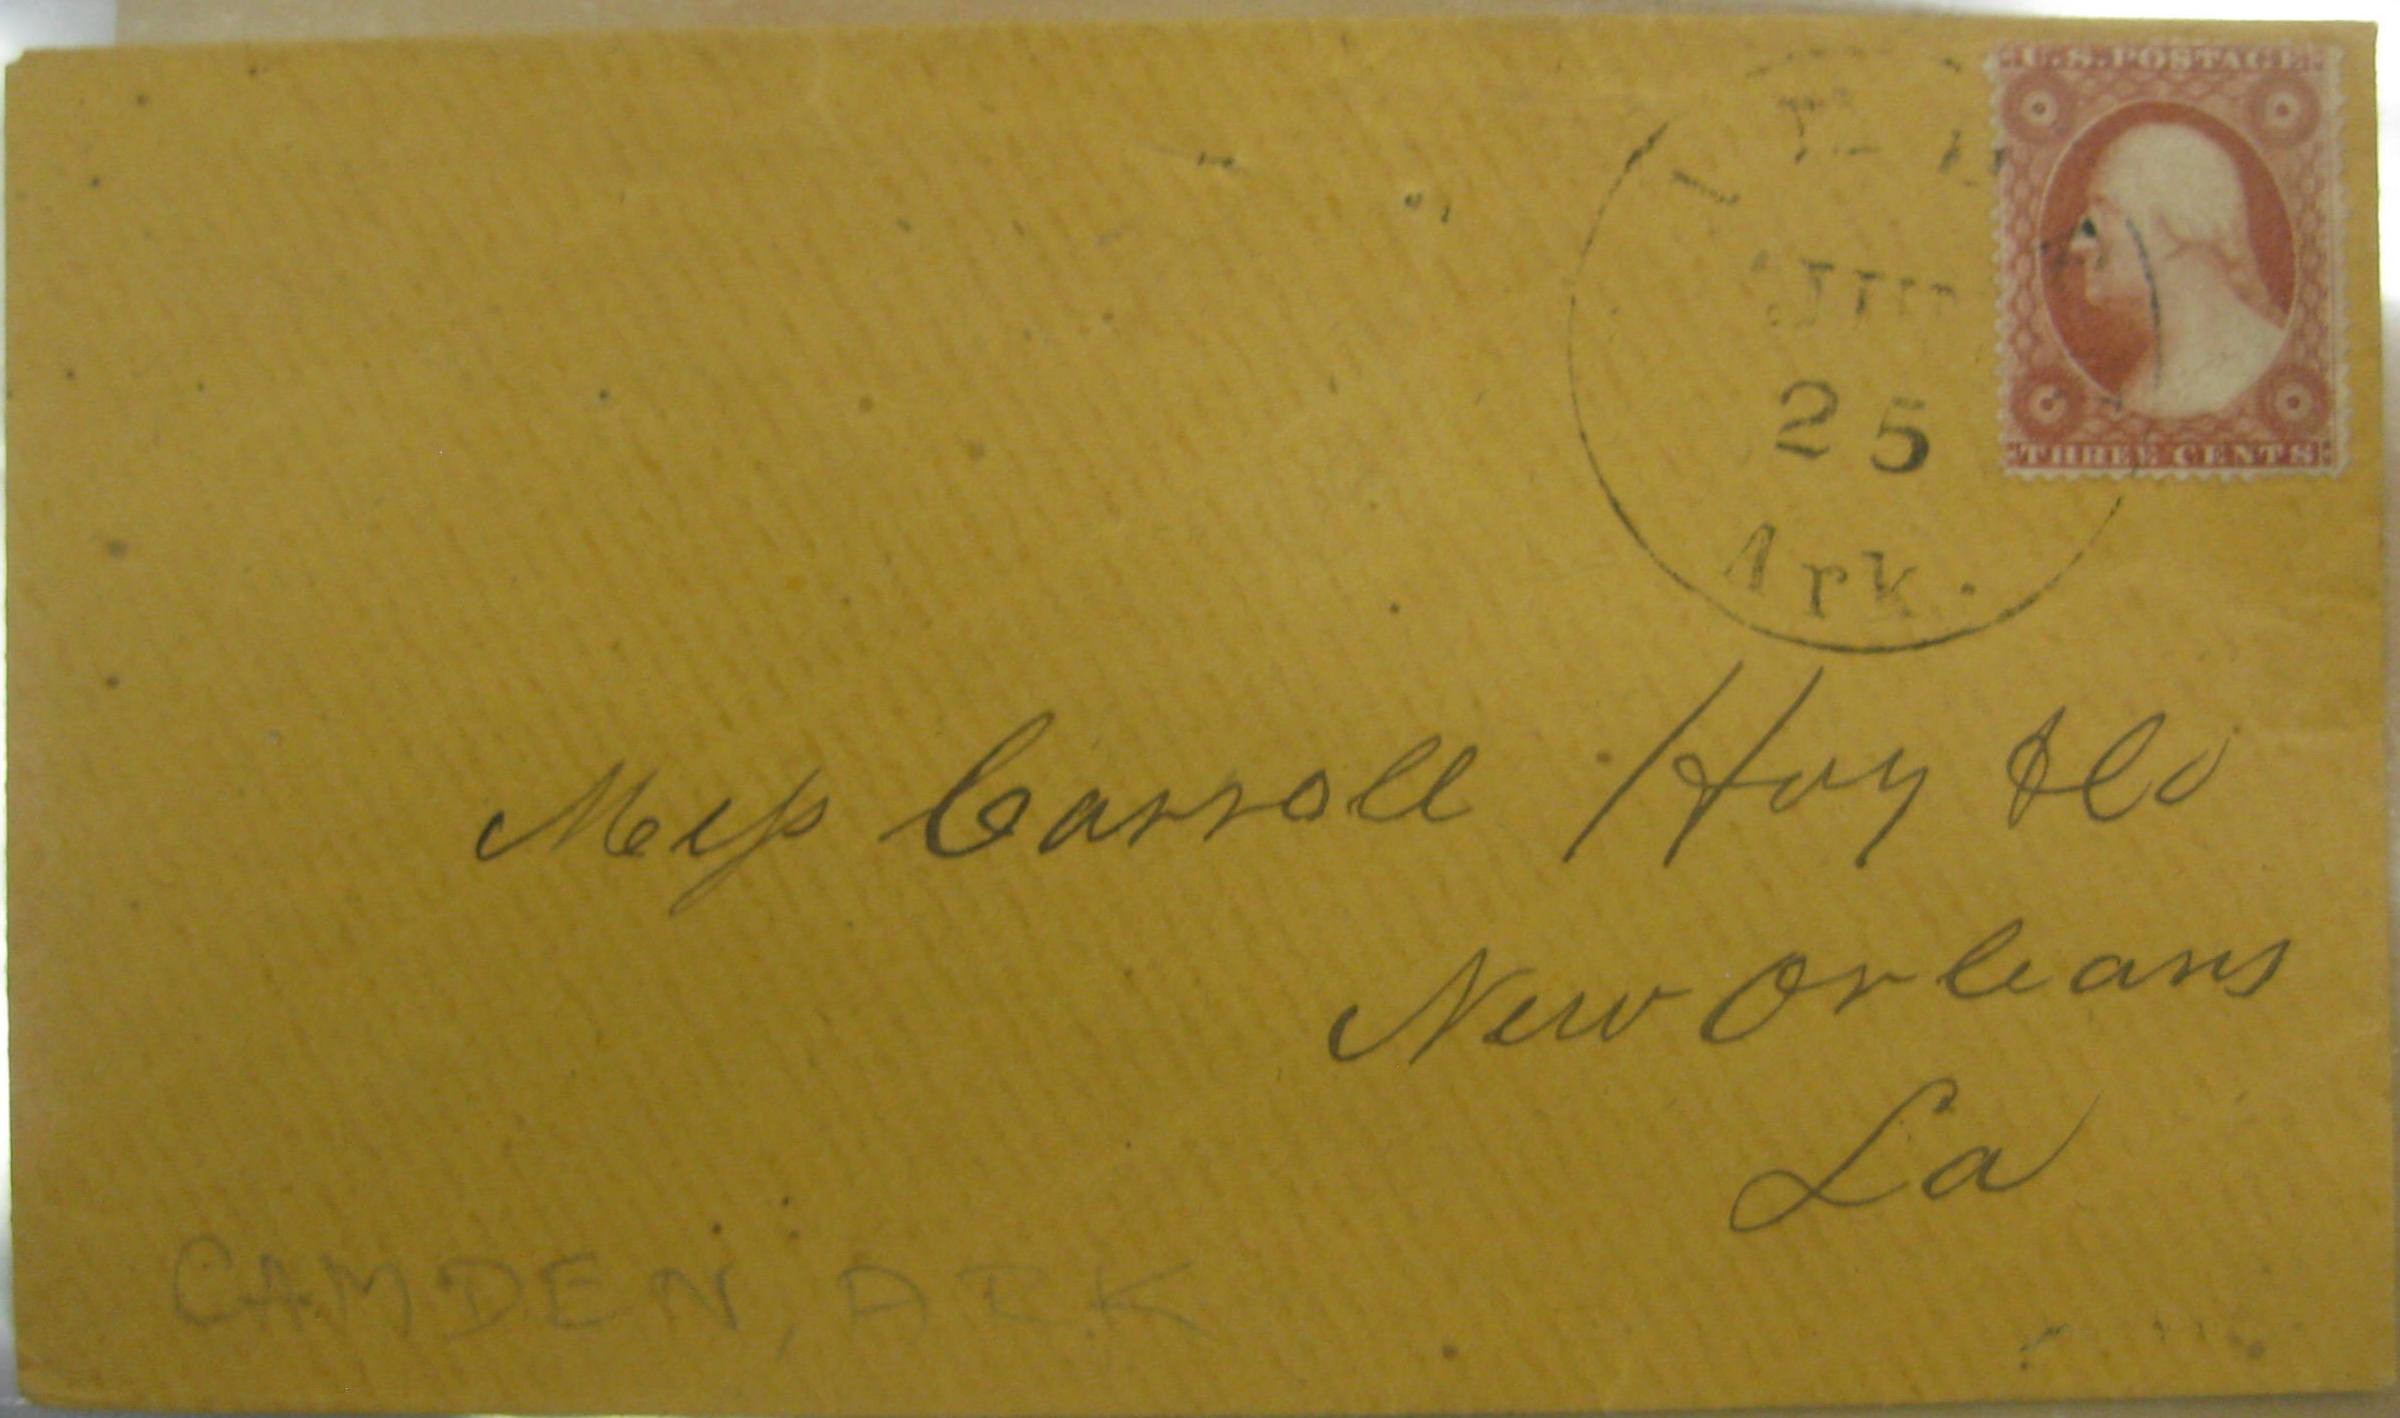 U.S. POSTAGE
THREE CENTS
25
Ark.
Mess Carroll Hoy & Co
New Orleans
La
CAMDEN, ARK